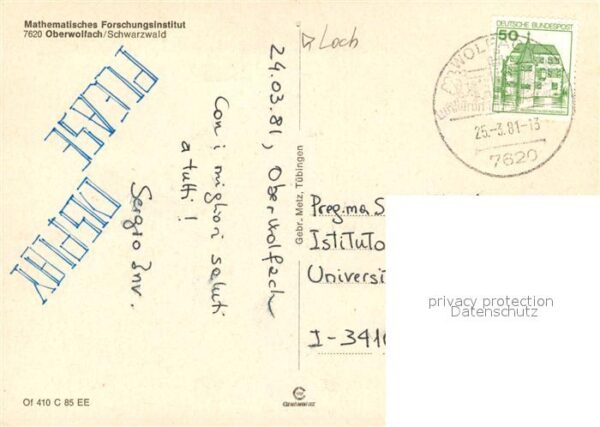 Mathematisches Forschungsinstitut
7620 Oberwolfach/Schwarzwald
PLEASE
DISPLAY
24.03.81, Oberwolfach
Con i migliori saluti
a tutti!
Sergio Inv.
Loch
DEUTSCHE BUNDESPOST
50
25.-3.81-13
7620
Gebr. Metz, Tübingen
Preg.ma S
Istituto
Universi
I-3410
privacy protection
Datenschutz
Of 410 C 85 EE